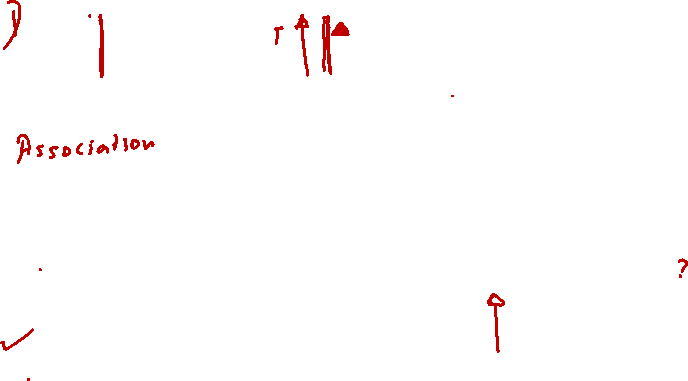 Association
?